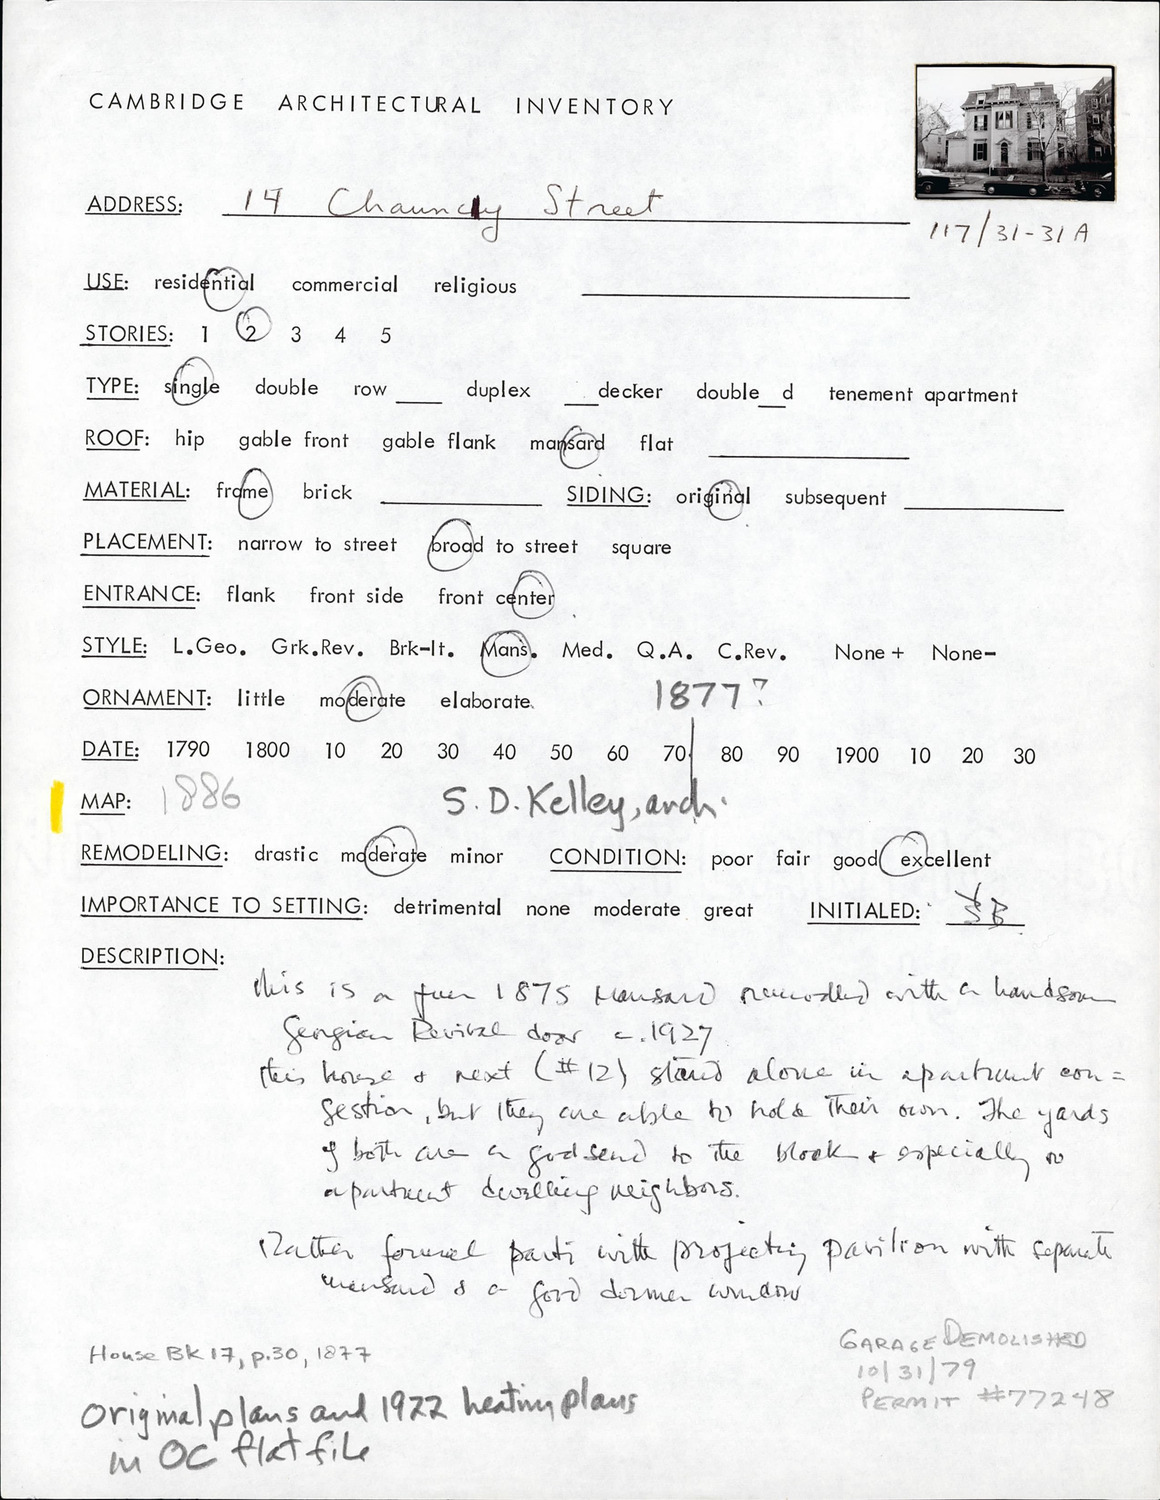 CAMBRIDGE ARCHITECTURAL INVENTORY
ADDRESS: 14 Chauncy Street
117/31-31A
USE: residential commercial religious
STORIES: 1 2 3 4 5
TYPE: single double row ____ duplex ___decker double__d tenement apartment
ROOF: hip gable front gable flank mansard flat
MATERIAL: frame brick SIDING: original subsequent
PLACEMENT: narrow to street broad to street square
ENTRANCE: flank front side front center
STYLE: L.Geo. Grk.Rev. Brk-It. Mans. Med. Q.A. C.Rev. None+ None-
ORNAMENT: little moderate elaborate 1877?
DATE: 1790 1800 10 20 30 40 50 60 70 80 90 1900 10 20 30
MAP: 1886 S. D. Kelley, arch.
REMODELING: drastic moderate minor CONDITION: poor fair good excellent
IMPORTANCE TO SETTING: detrimental none moderate great INITIALED: SB
DESCRIPTION:
this is a 1875 Mansard remodelled with a handsome
Georgian Revival door c.1927
this house & next (#12) stand alone in apartment con=
gestion, but they are able to hold their own. The yards
of both are a godsend to the block & especially to
apartment dwelling neighbors.
Rather formal parti with projecting pavilion with separate
mansard & a good dormer window
House Bk 17, p.30, 1877
GARAGE DEMOLISHED
10/31/79
PERMIT #77248
Original plans and 1922 heating plans
in OC flat file